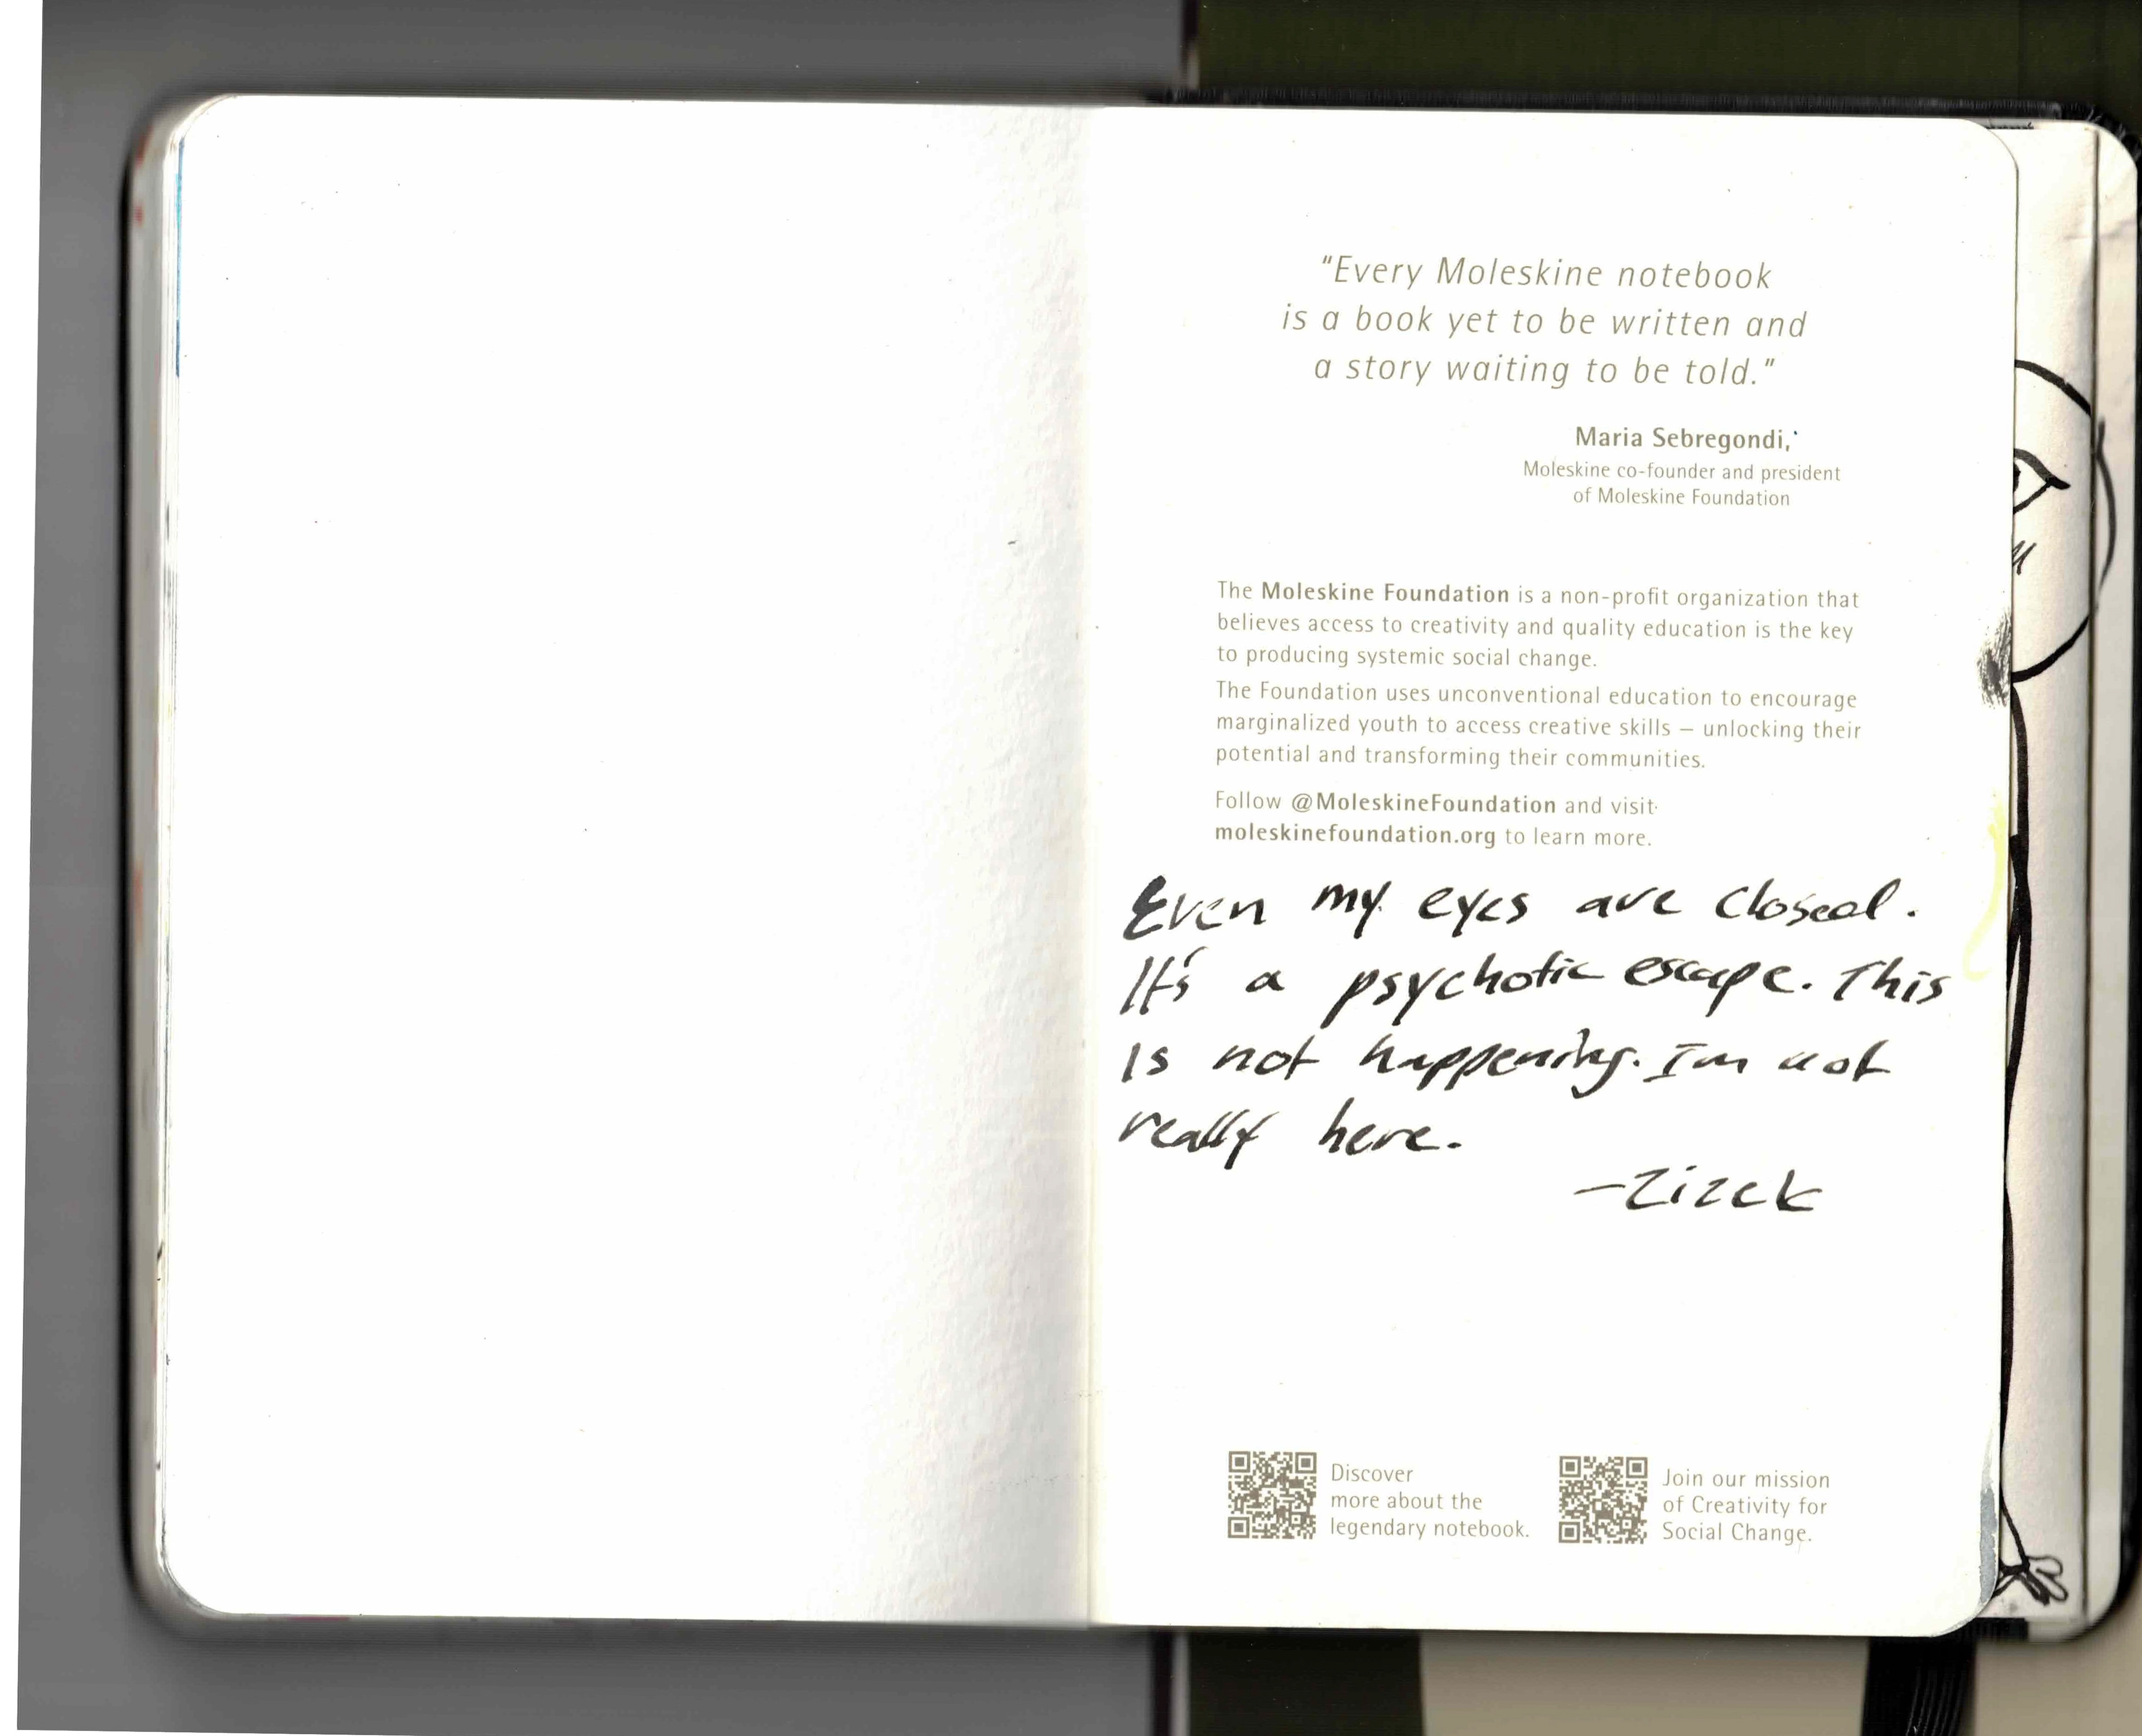 "Every Moleskine notebook
is a book yet to be written and
a story waiting to be told."
Maria Sebregondi,
Moleskine co-founder and president
of Moleskine Foundation
The Moleskine Foundation is a non-profit organization that
believes access to creativity and quality education is the key
to producing systemic social change.
The Foundation uses unconventional education to encourage
marginalized youth to access creative skills – unlocking their
potential and transforming their communities.
Follow @MoleskineFoundation and visit
moleskinefoundation.org to learn more.
Even my eyes are closed.
It's a psychotic escape. This
is not happening. I'm not
really here.
–Zizek
Discover
more about the
legendary notebook.
Join our mission
of Creativity for
Social Change.